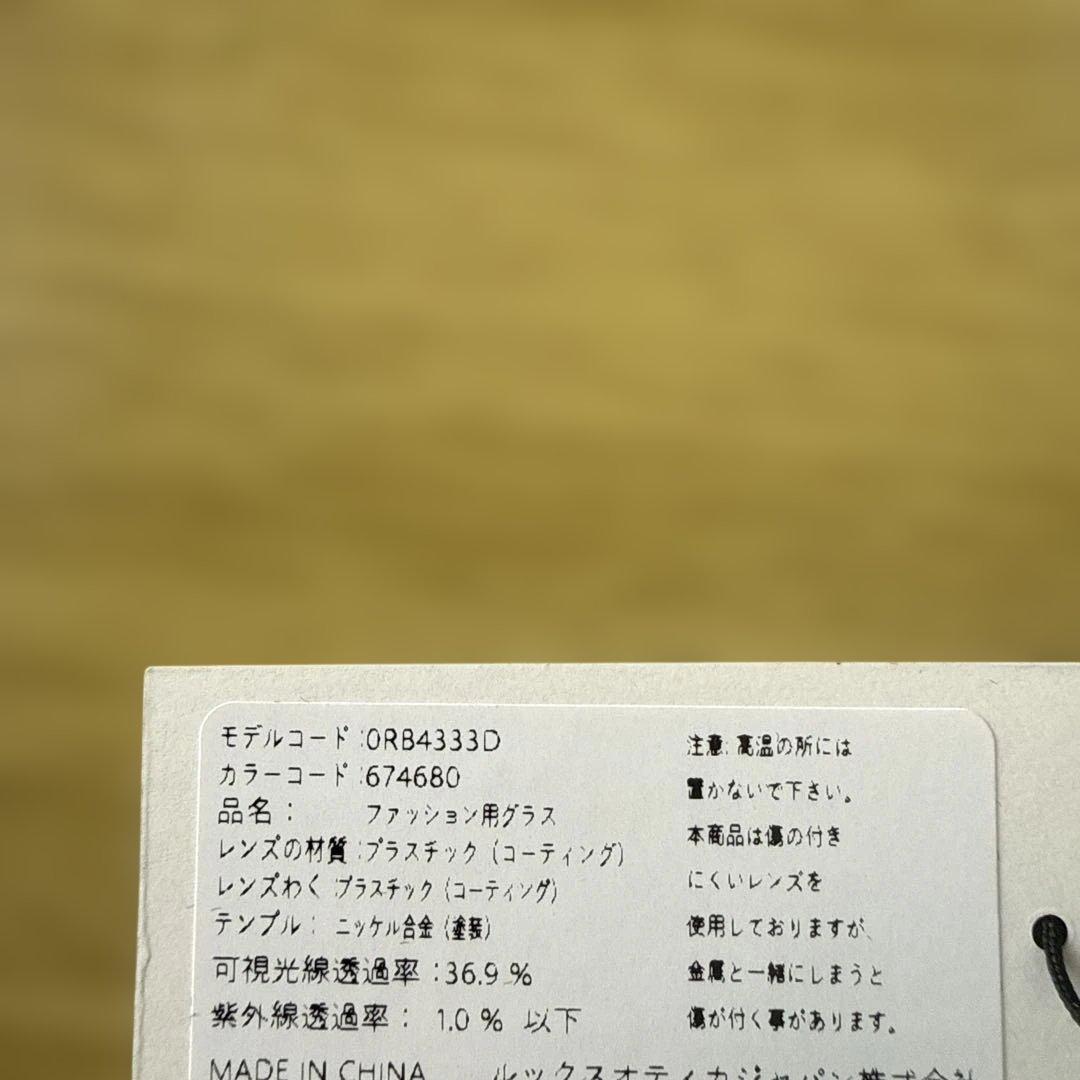 モデルコード:0RB4333D
カラーコード:674680
品名: ファッション用グラス
レンズの材質:プラスチック(コーティング)
レンズわく:プラスチック(コーティング)
テンプル: ニッケル合金(塗装)
可視光線透過率:36.9%
紫外線透過率: 1.0% 以下
MADE IN CHINA ルックスオティカジャパン株式会社
注意:高温の所には
置かないで下さい。
本商品は傷の付き
にくいレンズを
使用しておりますが、
金属と一緒にしまうと
傷が付く事があります。